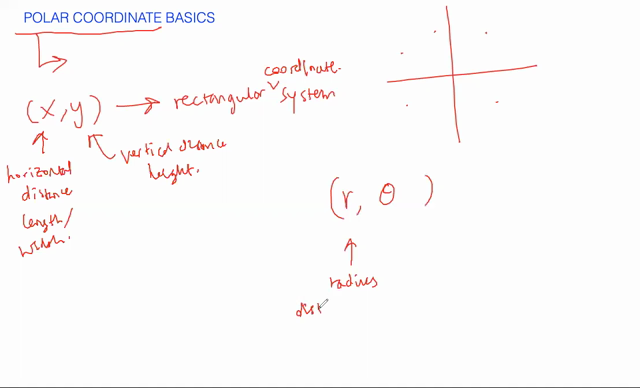 POLAR COORDINATE BASICS
(x,y) → rectangular coordinate system
horizontal
distance
length/
width.
vertical distance
height.
(r, θ )
radius
dist